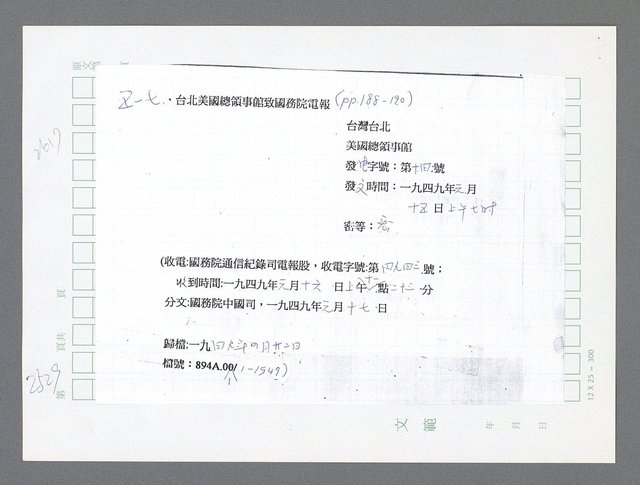 五一七、台北美國總領事館致國務院電報 (pp.188-190)
台灣台北
美國總領事館
發電字號：第十四號
發文時間：一九四九年元月
十五日上午七時
密等：密
(收電:國務院通信紀錄司電報股，收電字號:第四九四三號；
收到時間:一九四九年元月十六日上午十二點二十二分
分文:國務院中國司，一九四九年元月十七日
歸檔:一九四九年四月廿二日
檔號：894A.00/(1-1549)
2617
2529
第
頁共
頁
12 X 25 = 300
文範
年 月 日